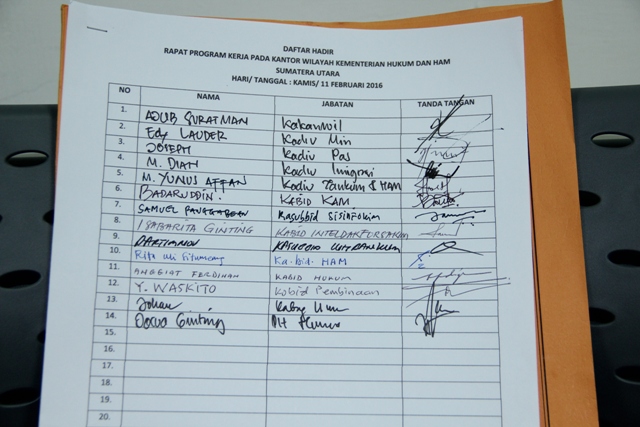 DAFTAR HADIR
RAPAT PROGRAM KERJA PADA KANTOR WILAYAH KEMENTERIAN HUKUM DAN HAM
SUMATERA UTARA
HARI/ TANGGAL : KAMIS/ 11 FEBRUARI 2016
NO NAMA JABATAN TANDA TANGAN
1. AJUB SURATMAN Kakanwil
2. Edy LAUDER Kadiv Min
3. JOSEPH Kadiv Pas
4. M. DIAH Kadiv Imigrasi
5. M. YUNUS AFFAN Kadiv Yankum & HAM
6. BADARUDDIN. KABID KAM
7. SAMUEL Kasubbid Sisinfokim
8. ISABARITA GINTING KABID INTELDAKFORSAKIM
9.
10. Rita uli Situmeang Ka.bid. HAM
11. ANGGIAT FERDINAN KABID HUKUM
12. Y. WASKITO Kabid Pembinaan
13. Johan Kabag Umum
14. Ginting Plt
15.
16.
17.
18.
19.
20.